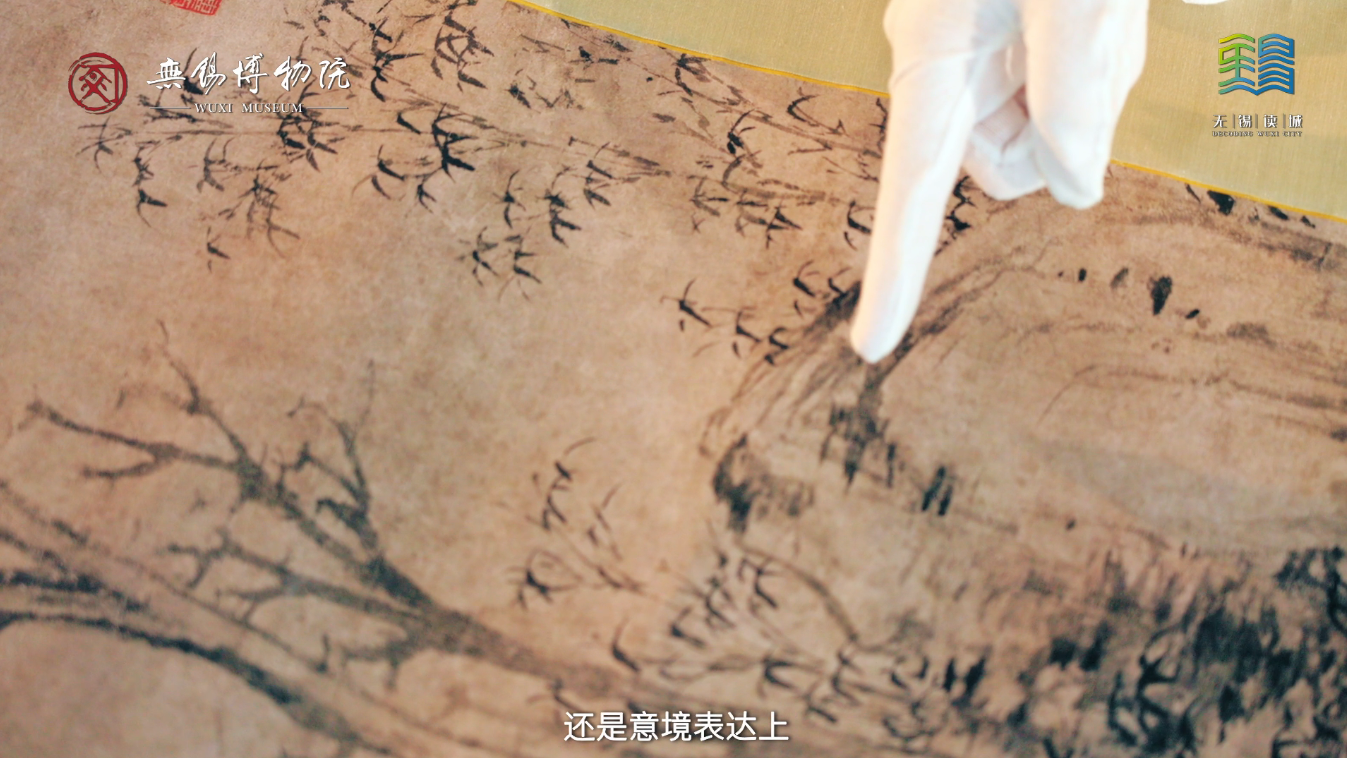 無錫博物院
WUXI MUSEUM
无锡读城
DECODING WUXI CITY
还是意境表达上